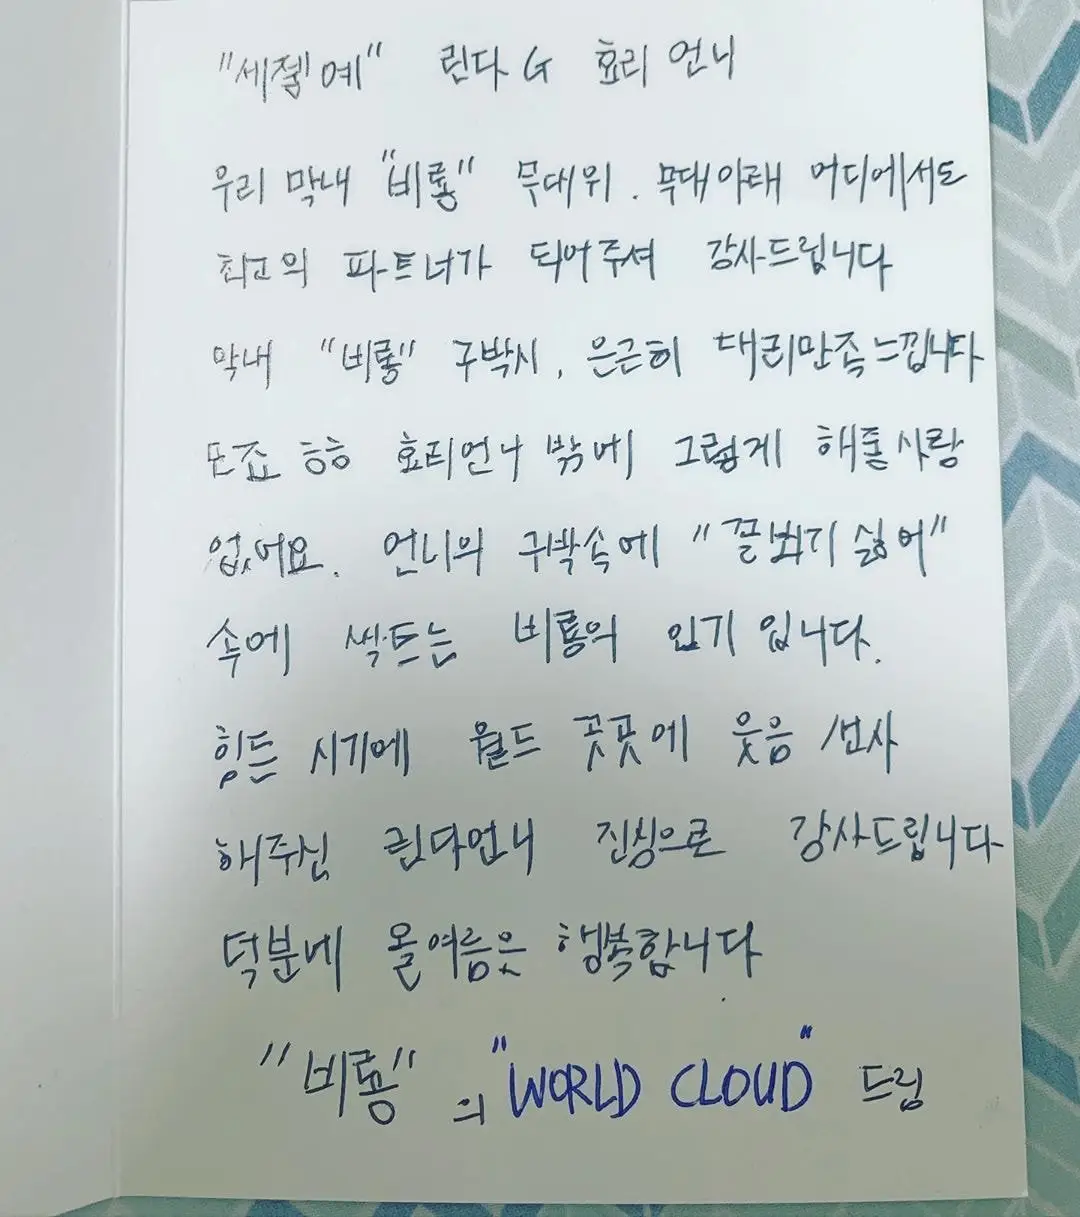 "세젤예" 린다 G 효리 언니
우리 막내 "비룡" 무대위. 무대아래 어디에서도
최고의 파트너가 되어주셔 감사드립니다
막내 "비룡" 구박시, 은근히 대리만족느낍니다
모죠 흠흠 효리언니 밖에 그렇게 해줄사람
없어요. 언니의 구박속에 "꼴뵈기 싫어"
속에 싹트는 비룡의 인기입니다.
힘든 시기에 월드 곳곳에 웃음 선사
해주신 린다언니 진심으로 감사드립니다
덕분에 올여름은 행복합니다
"비룡"의 "WORLD CLOUD" 드림